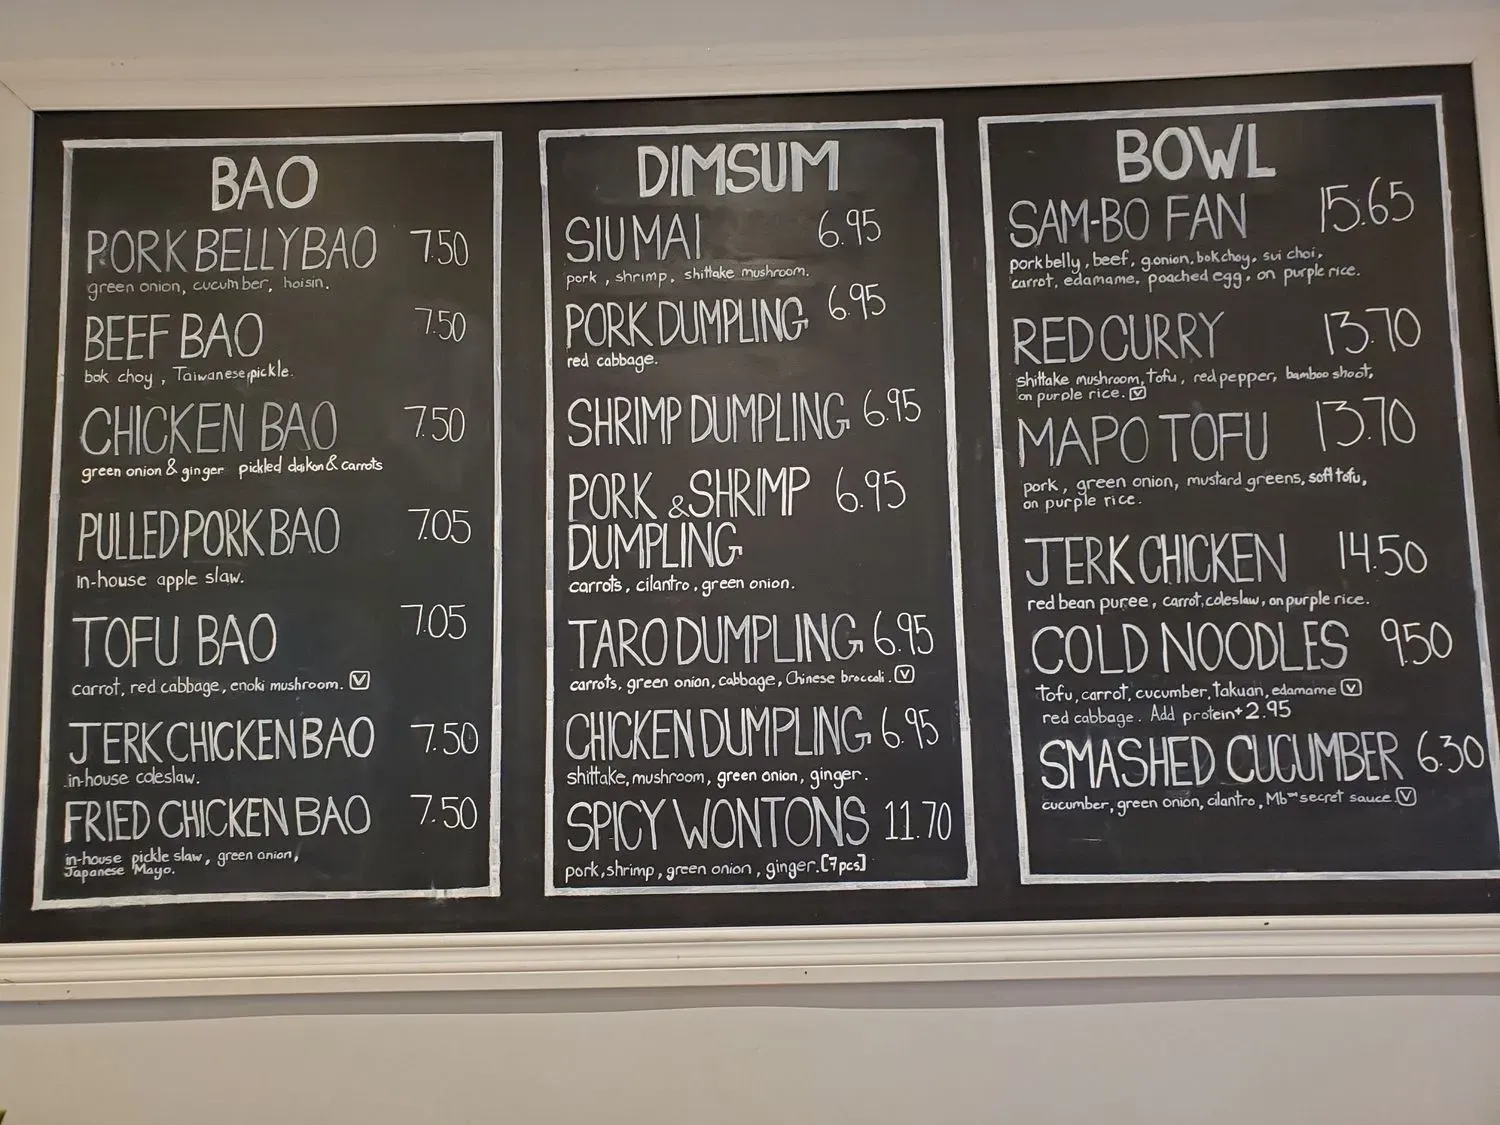 BAO
PORK BELLY BAO 7.50
green onion, cucumber, hoisin.
BEEF BAO 7.50
bok choy, Taiwanese pickle.
CHICKEN BAO 7.50
green onion & ginger pickled daikon & carrots
PULLED PORK BAO 7.05
in-house apple slaw.
TOFU BAO 7.05
carrot, red cabbage, enoki mushroom. V
JERK CHICKEN BAO 7.50
in-house coleslaw.
FRIED CHICKEN BAO 7.50
in-house pickle slaw, green onion,
Japanese Mayo.
DIMSUM
SIU MAI 6.95
pork, shrimp, shittake mushroom.
PORK DUMPLING 6.95
red cabbage.
SHRIMP DUMPLING 6.95
PORK & SHRIMP 6.95
DUMPLING
carrots, cilantro, green onion.
TARO DUMPLING 6.95
carrots, green onion, cabbage, Chinese broccoli. V
CHICKEN DUMPLING 6.95
shittake, mushroom, green onion, ginger.
SPICY WONTONS 11.70
pork, shrimp, green onion, ginger. [7pcs]
BOWL
SAM-BO FAN 15.65
pork belly, beef, g.onion, bok choy, sui choi,
carrot, edamame, poached egg, on purple rice.
RED CURRY 13.70
shittake mushroom, tofu, red pepper, bamboo shoot,
on purple rice. V
MAPO TOFU 13.70
pork, green onion, mustard greens, soft tofu,
on purple rice.
JERK CHICKEN 14.50
red bean puree, carrot, coleslaw, on purple rice.
COLD NOODLES 9.50
tofu, carrot, cucumber, takuan, edamame V
red cabbage. Add protein + 2.95
SMASHED CUCUMBER 6.30
cucumber, green onion, cilantro, Mb™ secret sauce. V